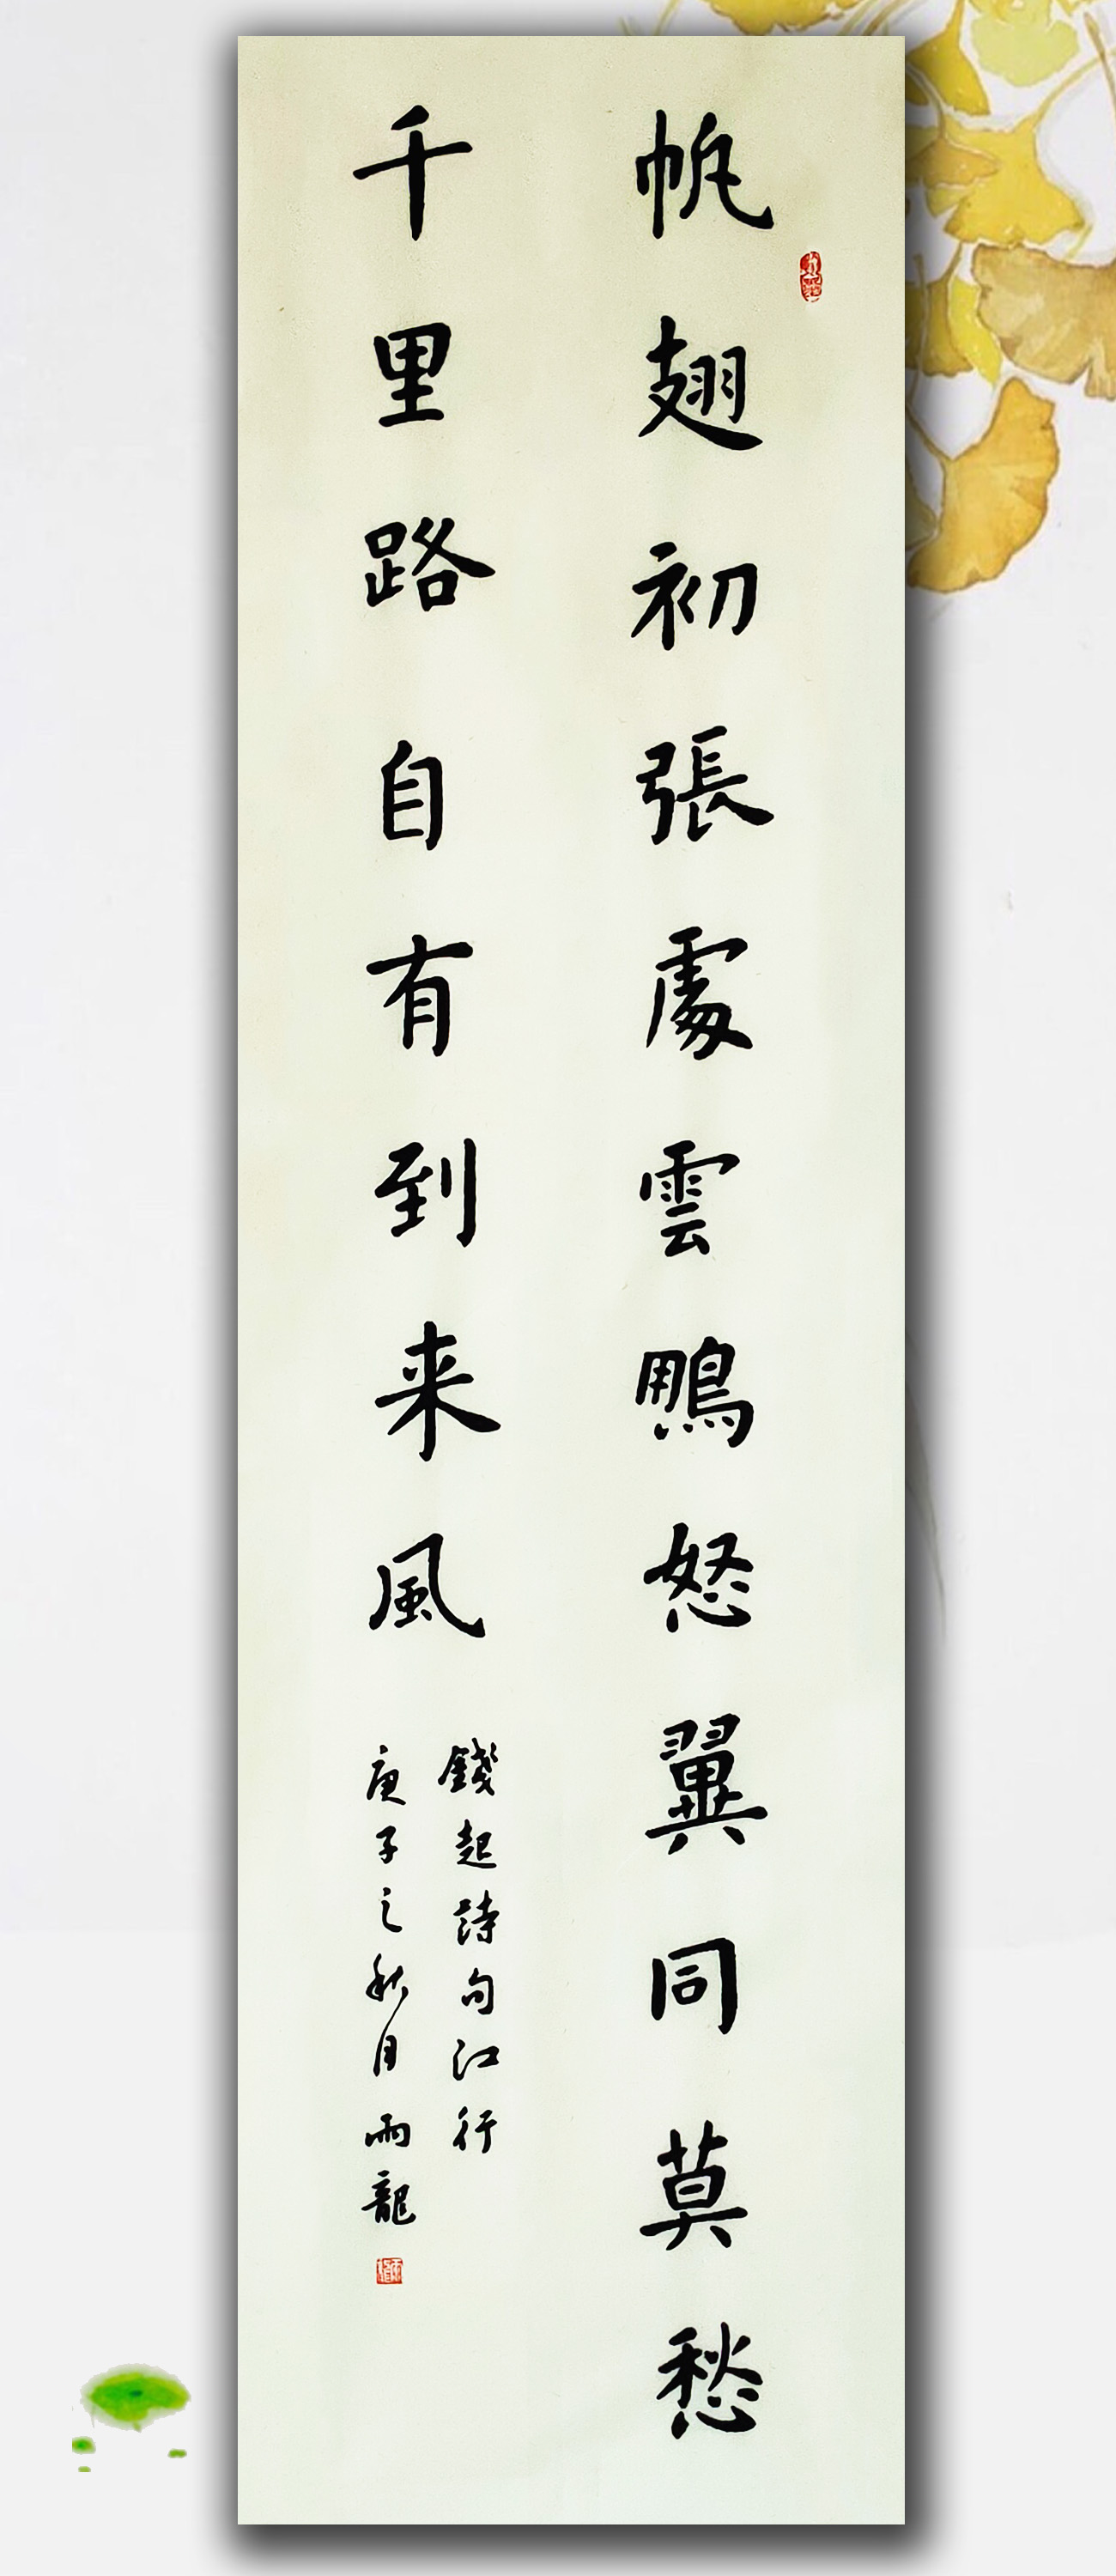 帆翅初張處雲鵬怒翼同莫愁
千里路自有到来風
錢起詩句江行
庚子之秋月雨龍